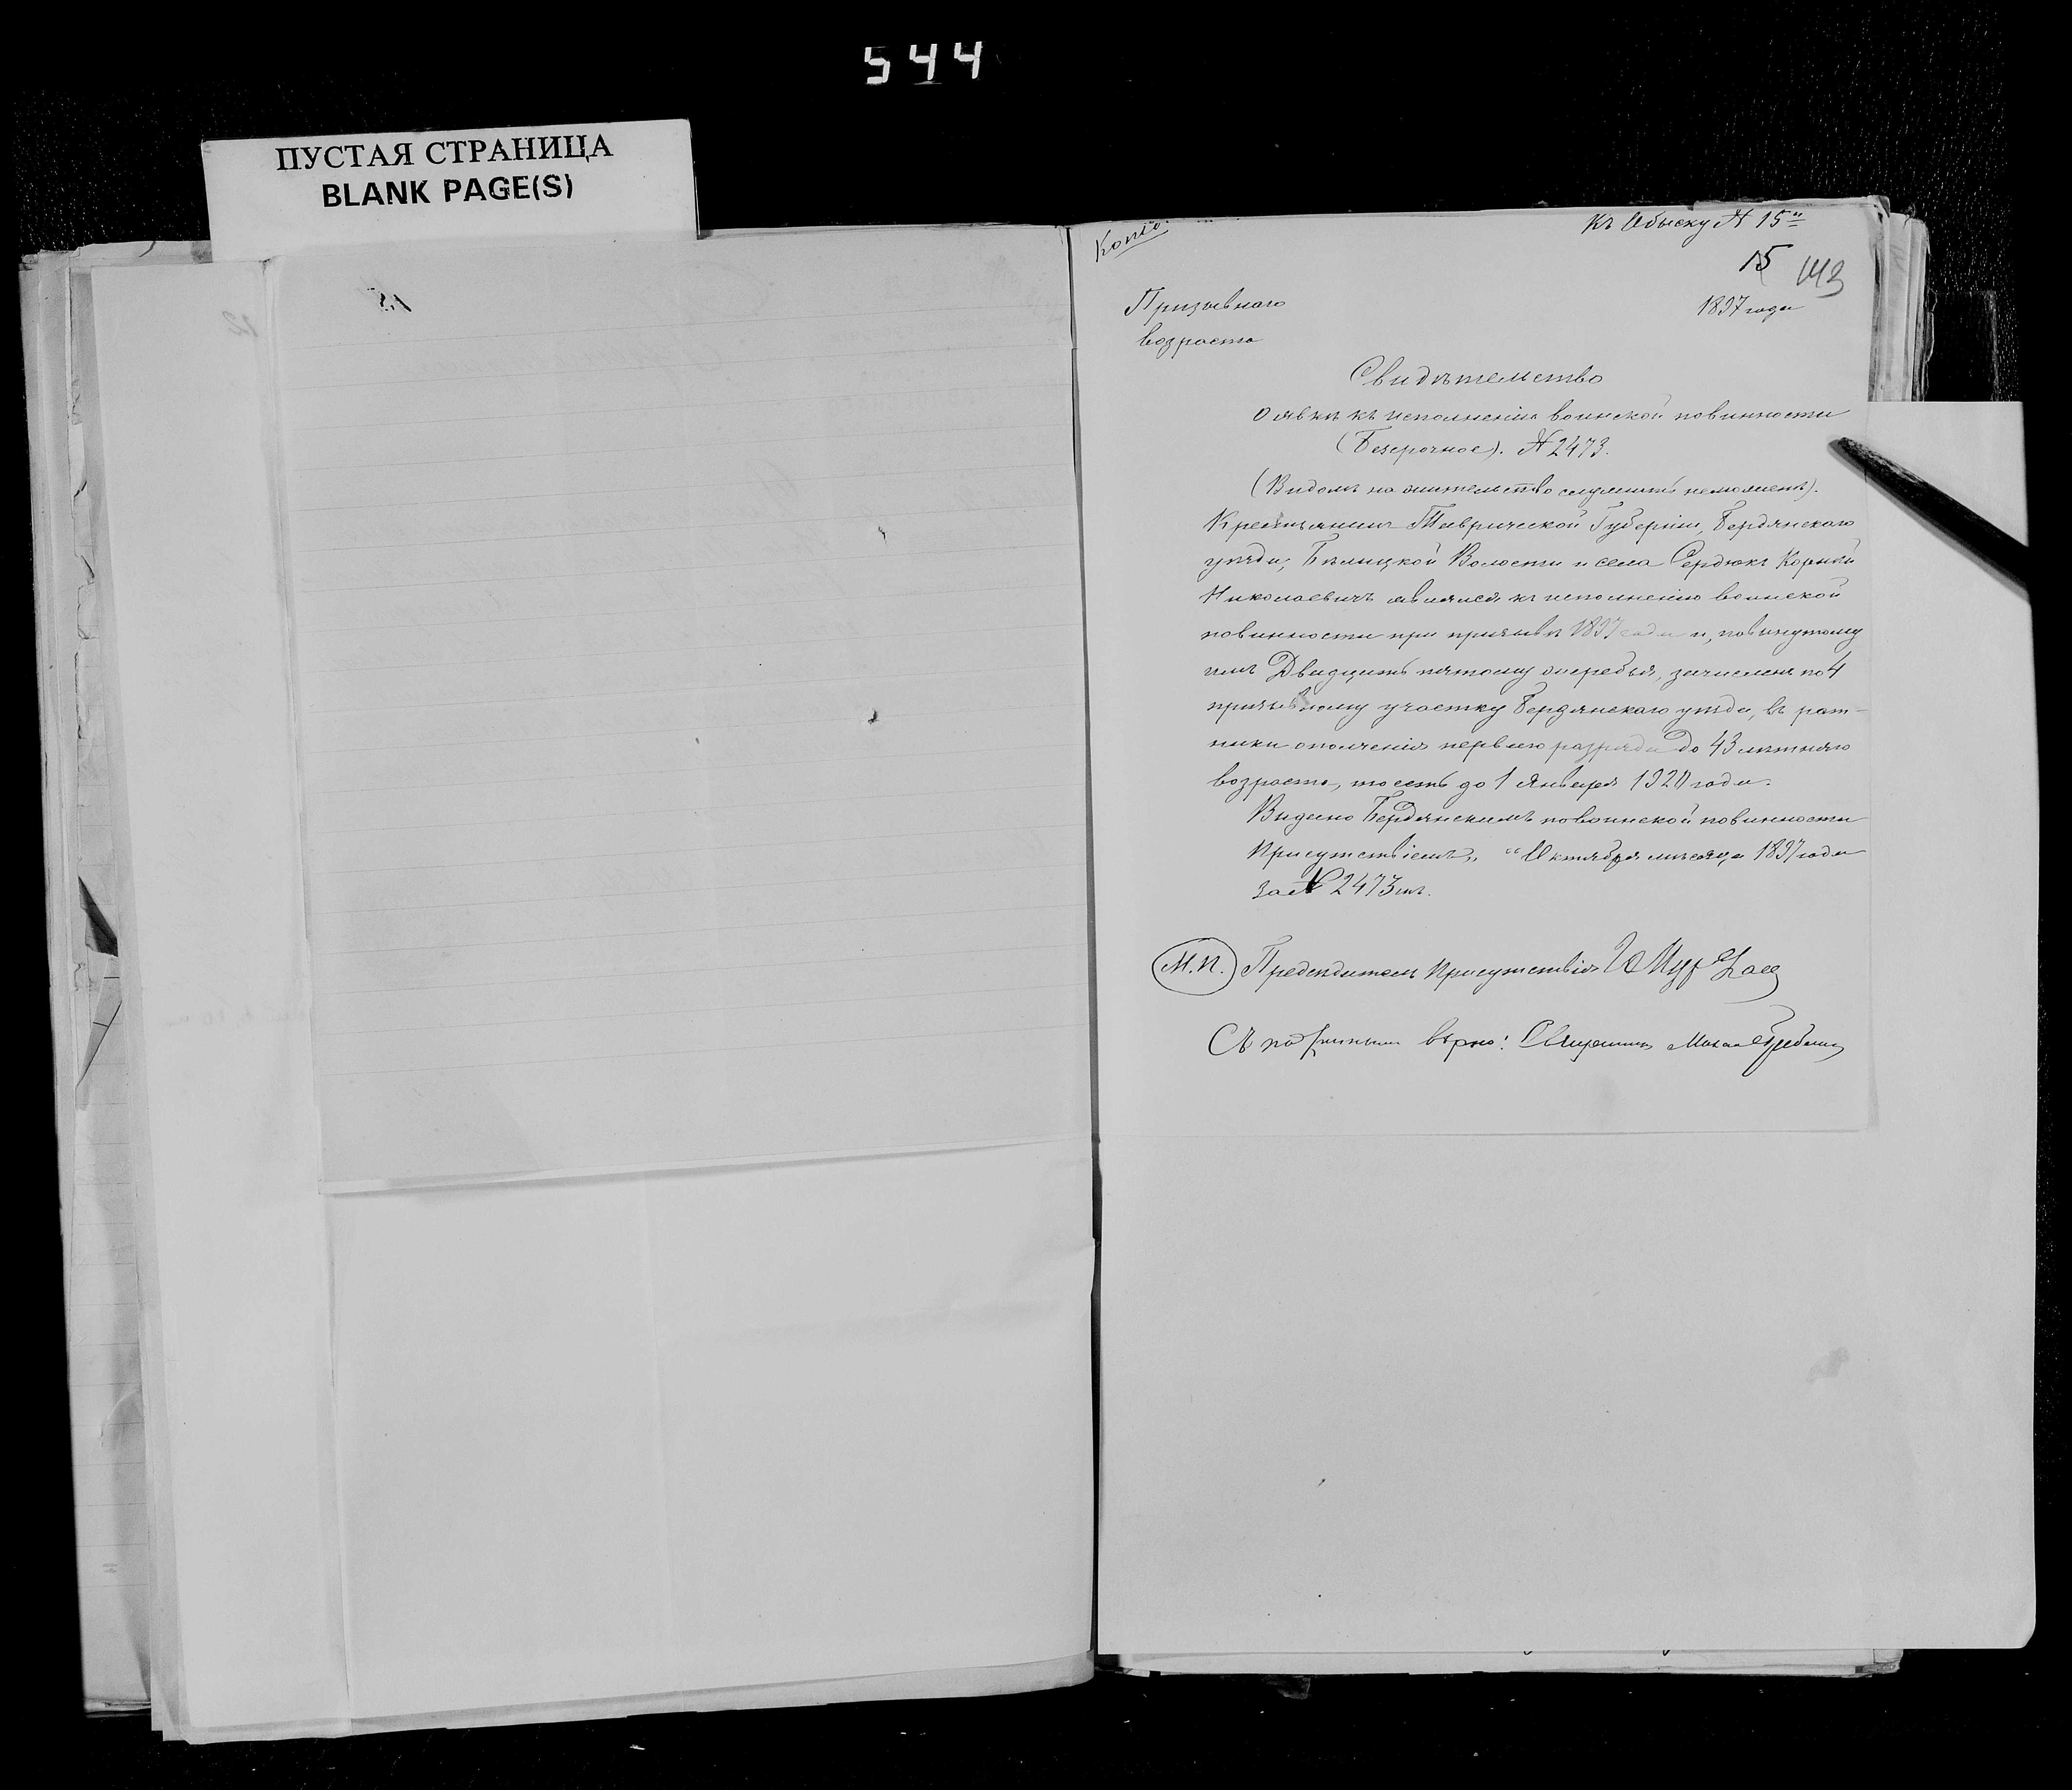 544
ПУСТАЯ СТРАНИЦА
BLANK PAGE(S)
Копія
Къ Обыску № 15й
15
Призывнаго
возраста
1897 года
Свидѣтельство
о явкѣ къ исполненію воинской повинности
(Безсрочное). № 2473.
(Видомъ на жительство служить не можетъ).
Крестьянинъ Таврической Губерніи, Бердянскаго
уѣзда, Волости и села Сердюкъ Корній
Николаевичъ являлся къ исполненію воинской
повинности при призывѣ 1897 года и, по вынутому
имъ Двадцать пятому жеребья, зачисленъ по 4
призывному участку Бердянскаго уѣзда, въ рат-
ники ополченія перваго разряда до 43 лѣтняго
возраста, то есть до 1 Января 1920 года.
Выдано Бердянскимъ по воинской повинности
Присутствіемъ „ “ Октября мѣсяца 1897 года
за № 2473 мъ.
М.П. Предсѣдатель Присутствія
Съ подлиннымъ вѣрно: Священникъ